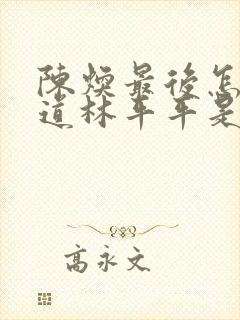 陳煥最後怎
道林平平是
高永文